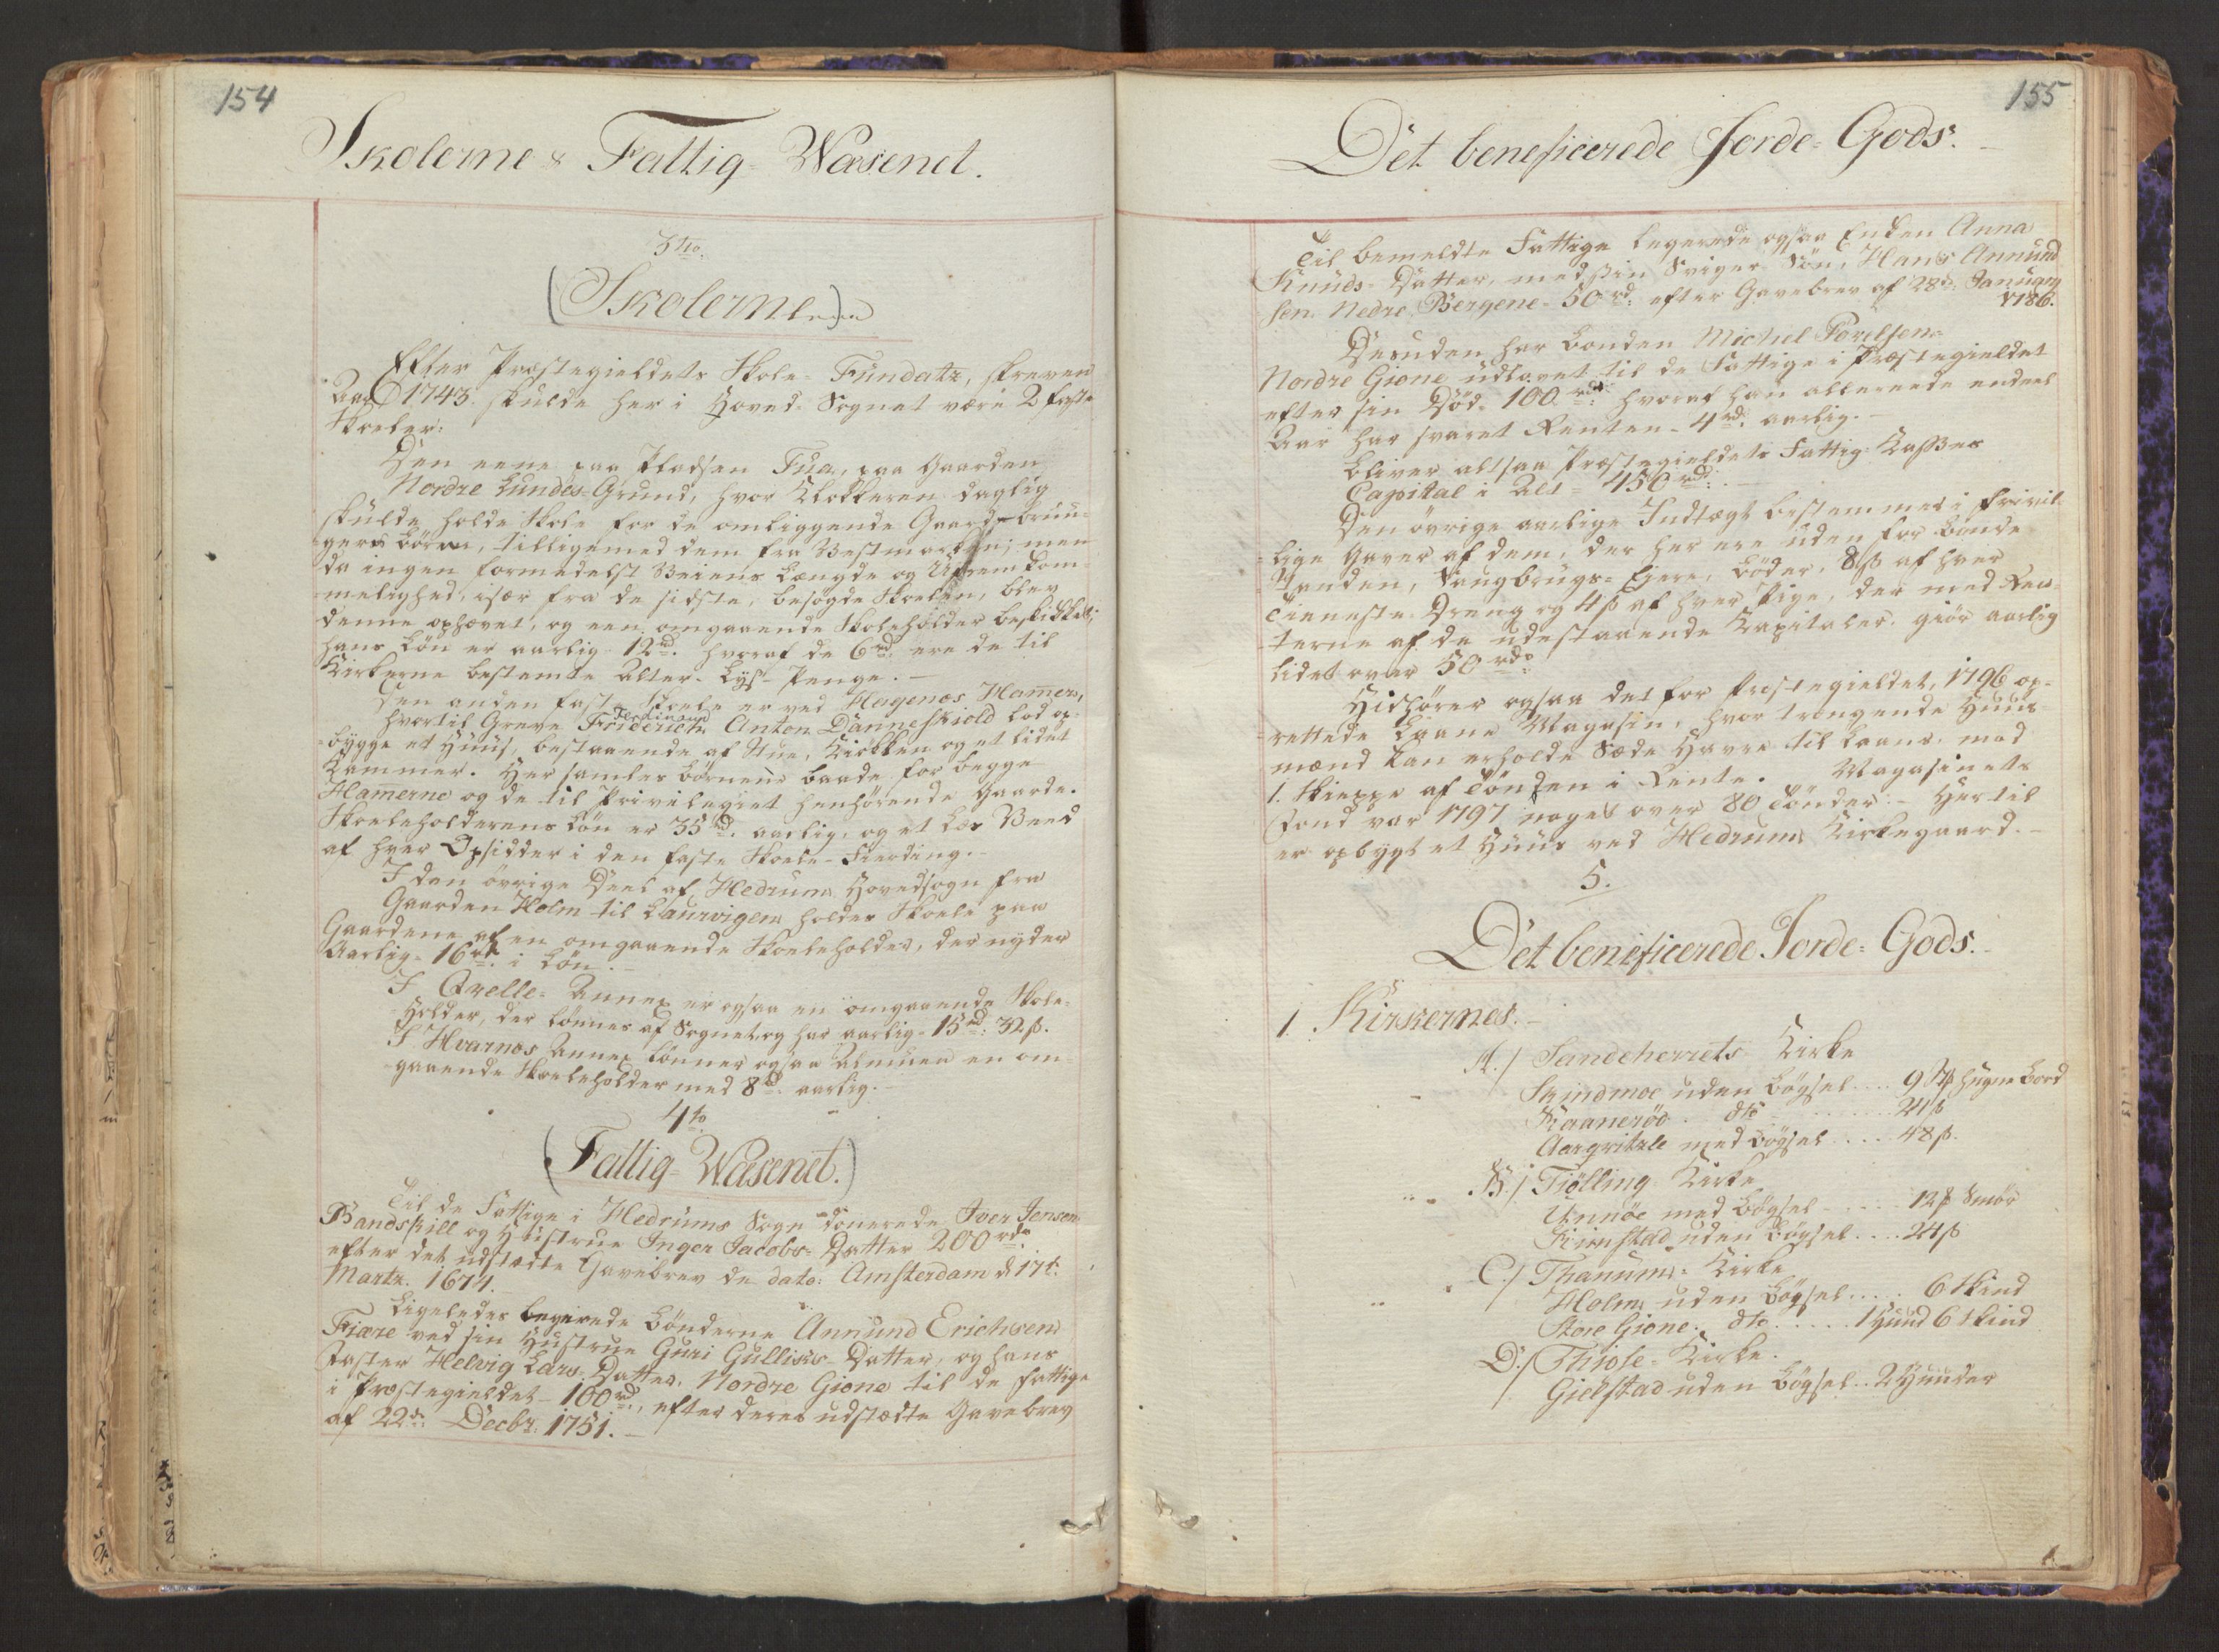 154
Skolerne & Fattig-Wæsenet.
3tio.
(Skolerne)
Efter Præstegieldets Skole-Fundatz, skreven
Aar 1743. skulde her i Hoved-Sognet være 2 faste
Skoeler:
Den eene paa Pladsen Fua, paa Gaarden
Nordre Lundes-Grund, hvor Klokkeren daglig
skulde holde Skole for de omliggende Gaardbrun-
gers Børn, tilligemed dem fra Vestmarken; men
da ingen formedelst Veiens Længde og Ufremkom-
melighed, især fra de sidste, besøgde Skoelen, blev
denne ophævet, og een omgaaende Skoleholder beskikket;
hans Løn er aarlig 12 rd. hvoraf de 6 rd. ere de til
Kirkerne bestemte Alter-Lys-Penge.
Den anden fast Skoele er ved Hagenæs Hamer,
hvortil Greve Friderich Ferdinand Anton Danneskiold lod op-
bygge et Huus, bestaaende af Stue, Kiøkken og et lidet
Kammer. Her samles Børnene baade for begge
Hamerne og de til Privilegiet henhørende Gaarde.
Skoeleholderens Løn er 35 rd. aarlig, og et Læs Veed
af hver Opsidder i den faste Skoele-Fierding.
I den øvrige Deel af Hedrums Hovedsogn fra
Gaarden Holm til Laurvigen holdes Skoele paa
Gaardene af en omgaaende Skoeleholder, der nyder
Aarlig 16 rd. i Løn.
I Qvelle-Annex er ogsaa en omgaaende Skole-
Holder, der lønnes af Sognet, og har aarlig 15 rd: 32 ß.
I Hvarnæs Annex lønner ogsaa Almuen en om-
gaaende Skoeleholder med 8 rd. aarlig.
4to
(Fattig-Wæsenet.)
Til de Fattige i Hedrums Sogn donerede Iver Jensen
Bandskill og Hustrue Inger Jacobs-Datter 200 rdr.
efter det udstædte Gavebrev de dato: Amsterdam d 17t.
Martz. 1674.
Ligeledes legerede Bønderne Annund Erichsen
Fiære ved sin Hustrue Guri Gullichs-Datter, og hans
Faster Helvig Lars-Datter, Nordre Gione til de fattige
i Præstegieldet 100 rd., efter deres udstædte Gavebrev
af 22de Decbr: 1751.
155
Det beneficerede Jorde-Gods.
Til bemeldte Fattige legerede ogsaa Enken Anna
Knuds-Datter, med sin Sviger-Søn, Hans Annund
sen Nedre Bergene 50 rd: efter Gavebrev af 28de Januarij
1786.
Desuden har Bonden Michel Povelsen
Nordre Gione udlovet til de Fattige i Præstegieldet
efter sin Død 100 rdr. hvoraf han allereede endeel
Aar har svaret Renten 4 rd. aarlig.
Bliver altsaa Præstegieldets Fattig-Kasses
Capital i Alt 450 rd:
Den øvrige aarlige Indtægt bestemmes i frivil-
lige Gaver af dem, der her ere uden for Bonde
Standen, Saugbrugs-Eyere, Bøder, 8 ß af hver
Tieneste Dreng og 4 ß af hver Pige, der med Ren-
terne af de udestaaende Capitaler giør aarlig
lidet over 50 rdr.
Hidhører ogsaa det for Præstegieldet, 1796 op-
rettede Laane Magasin, hvor trængende Huus-
mænd kan erholde Sæde Havre til Laans, mod
1. Skieppe af Tønden i Rente. Magasinets
Fond var 1797 noget over 80 Tønder. Hertil
er opbygt et Huus ved Hedrums Kirkegaard.
5.
Det beneficerede Jorde-Gods.
1. Kirkernes.
A./ Sandeherrets Kirke
Skindmoe uden Bøgsel .... 9 Hugne Bord
Raanerød .. dto ........ 24 ß
Aargvitzle med Bøgsel .... 48 ß.
B./ Tiølling Kirke
Unnøe med Bøgsel ..... 12 ℔ Smør
Kimstad uden Bøgsel .... 24 ß
C./ Thanums Kirke
Holm uden Bøgsel .... 6 Skind
Store Gione .. dto ..... 1 Hund 6 Skind
D./ Thiose-Kirke.
Gielstad uden Bøgsel .. 2 Hunder